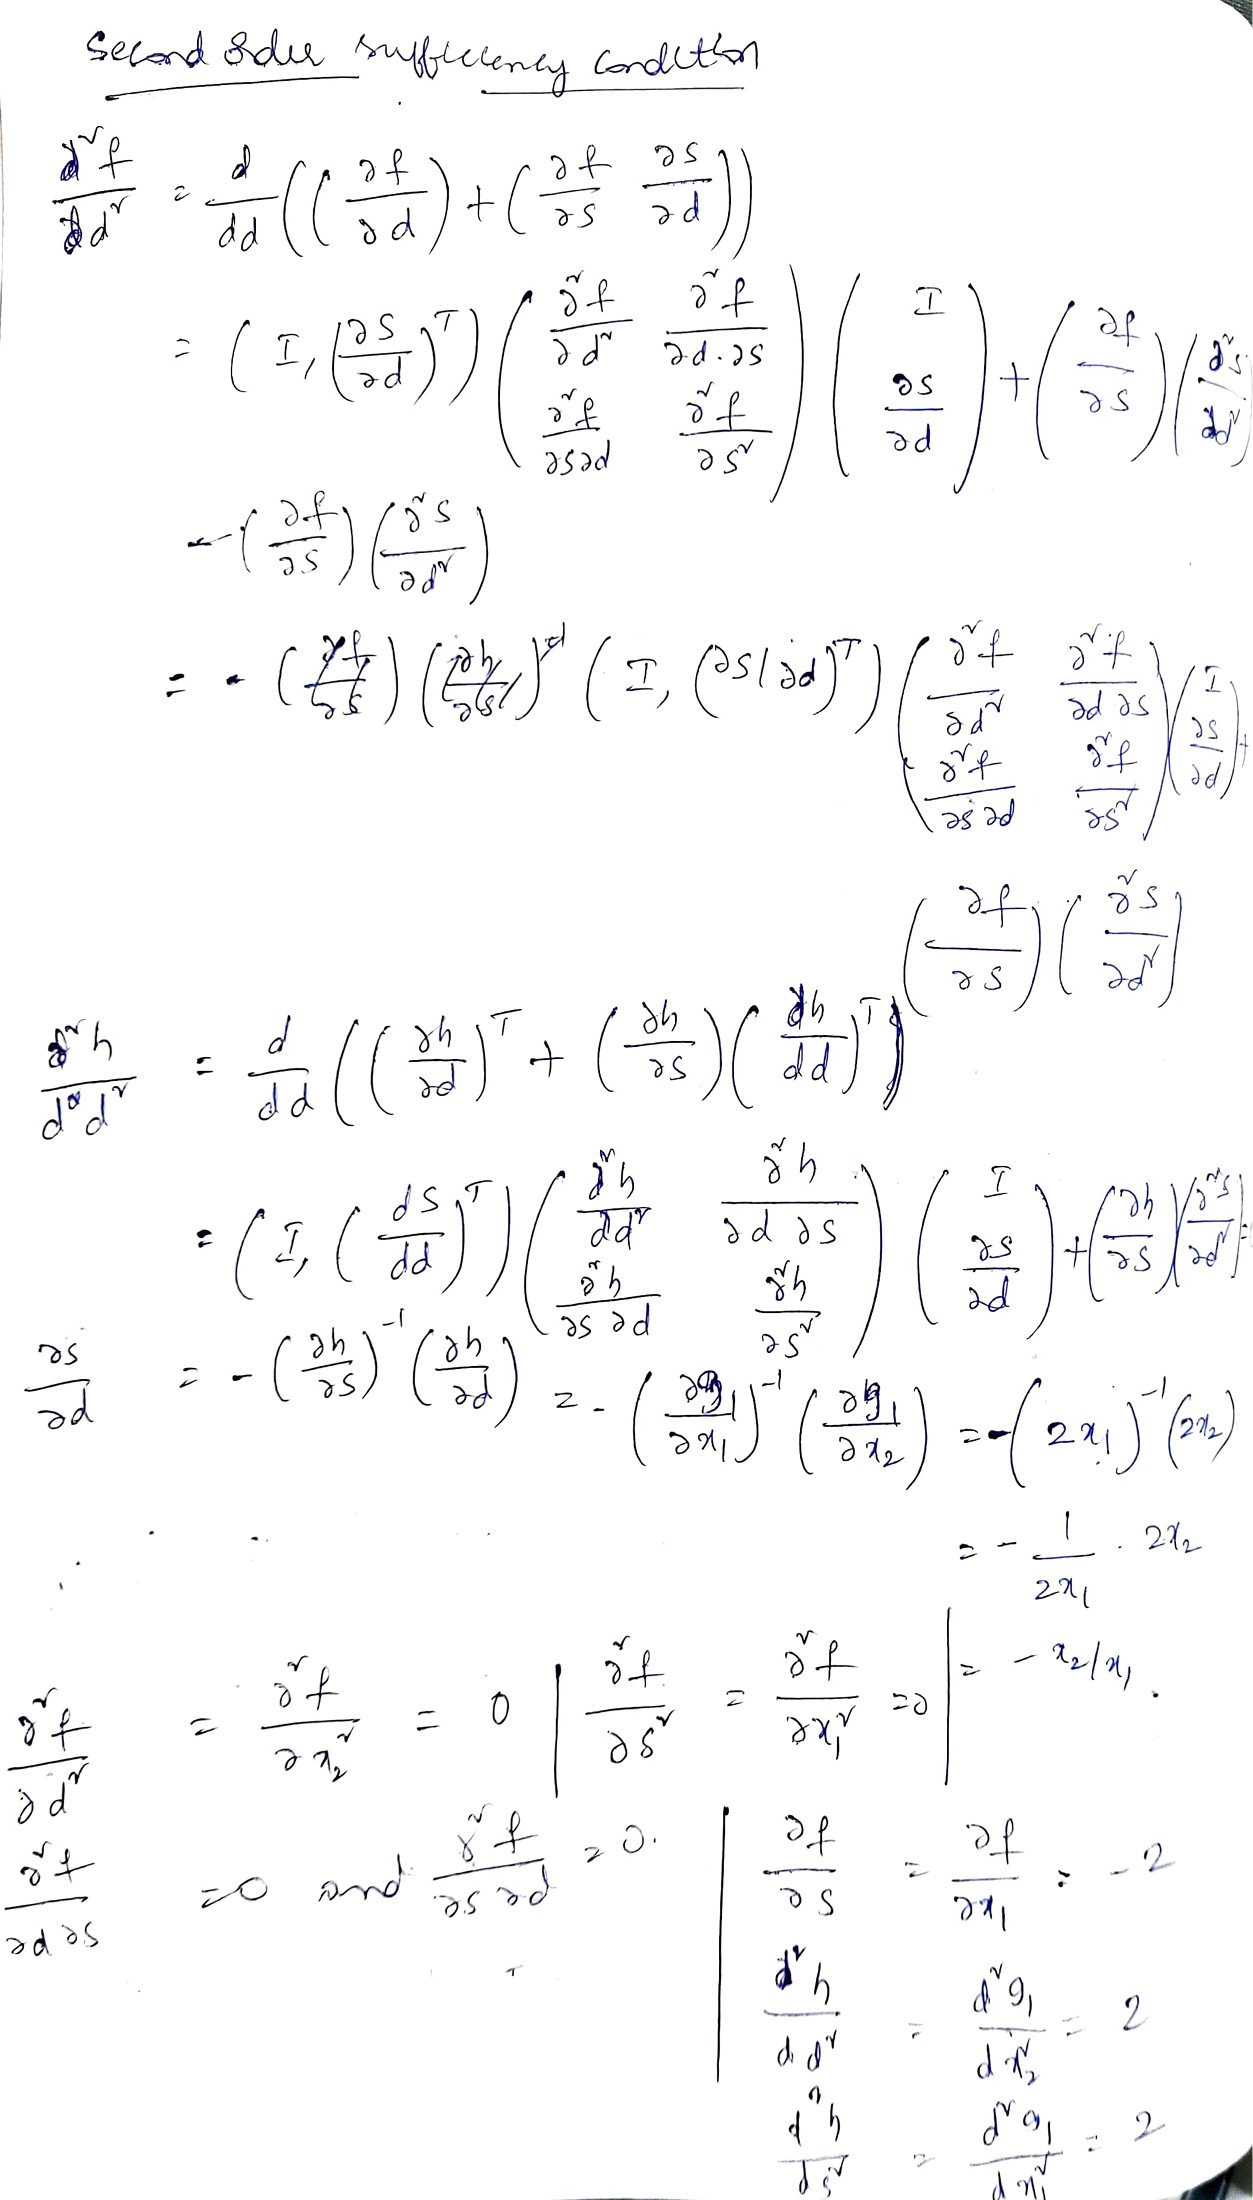 Second Order Sufficiency Condition
d²f/dd² = d/dd ((∂f/∂d) + (∂f/∂s ∂s/∂d))
= (I, (∂s/∂d)^T) (∂²f/∂d² ∂²f/∂d.∂s ; ∂²f/∂s∂d ∂²f/∂s²) (I ; ∂s/∂d) + (∂f/∂s) (d²s/dd²)
- (∂f/∂s) (∂²s/∂d²)
= - (I, (∂s/∂d)^T) (∂²f/∂d² ∂²f/∂d ∂s ; ∂²f/∂s ∂d ∂²f/∂s²) (I ; ∂s/∂d) +
(∂f/∂s) (∂²s/∂d²)
d²h/dd² = d/dd ((∂h/∂d)^T + (∂h/∂s) (dh/dd)^T)
= (I, (ds/dd)^T) (∂²h/∂d² ∂²h/∂d ∂s ; ∂²h/∂s ∂d ∂²h/∂s²) (I ; ∂s/∂d) + (∂h/∂s) (∂²s/∂d²) =
∂s/∂d = - (∂h/∂s)^-1 (∂h/∂d) = - (∂g₁/∂x₁)^-1 (∂g₁/∂x₂) = - (2x₁)^-1 (2x₂)
= - 1/2x₁ . 2x₂
= - x₂/x₁.
∂²f/∂d² = ∂²f/∂x₂² = 0 | ∂²f/∂s² = ∂²f/∂x₁² = 0
∂²f/∂d ∂s = 0 and ∂²f/∂s ∂d = 0. | ∂f/∂s = ∂f/∂x₁ = -2
d²h/dd² = d²g₁/dx₂² = 2
d²h/ds² = d²g₁/dx₁² = 2